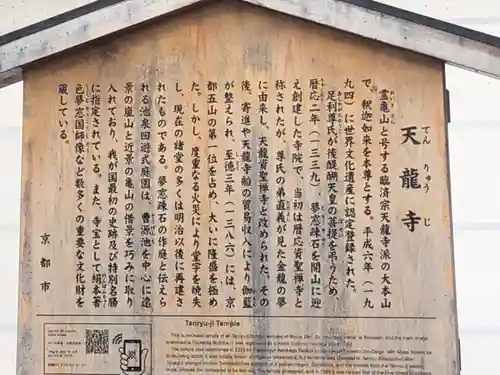 天龍寺
てん りゅう じ
霊亀山と号する臨済宗天龍寺派の大本山
で、釈迦如来を本尊とする。平成六年（一九
九四）に世界文化遺産に認定登録された。
足利尊氏が後醍醐天皇の菩提を弔うため、
暦応二年（一三三九）、夢窓疎石を開山に迎
え創建した寺院で、当初は暦応資聖禅寺と
称されたが、尊氏の弟直義が見た金龍の夢
に由来し、天龍資聖禅寺と改められた。その
後、寄進や天龍寺船の貿易収入により伽藍
が整えられ、至徳三年（一三八六）には、京
都五山の第一位を占め、大いに隆盛を極め
た。しかし、度重なる火災により堂宇を焼失
し、現在の諸堂の多くは明治以後に再建さ
れたものである。夢窓疎石の作庭と伝えら
れる池泉回遊式庭園は、曹源池を中心に遠
景の嵐山と近景の亀山の借景を巧みに取り
入れており、我が国最初の史跡及び特別名勝
に指定されている。また、寺宝として絹本著
色夢窓国師像など数多くの重要な文化財を
蔵している。
京都市
Tenryu-ji Temple